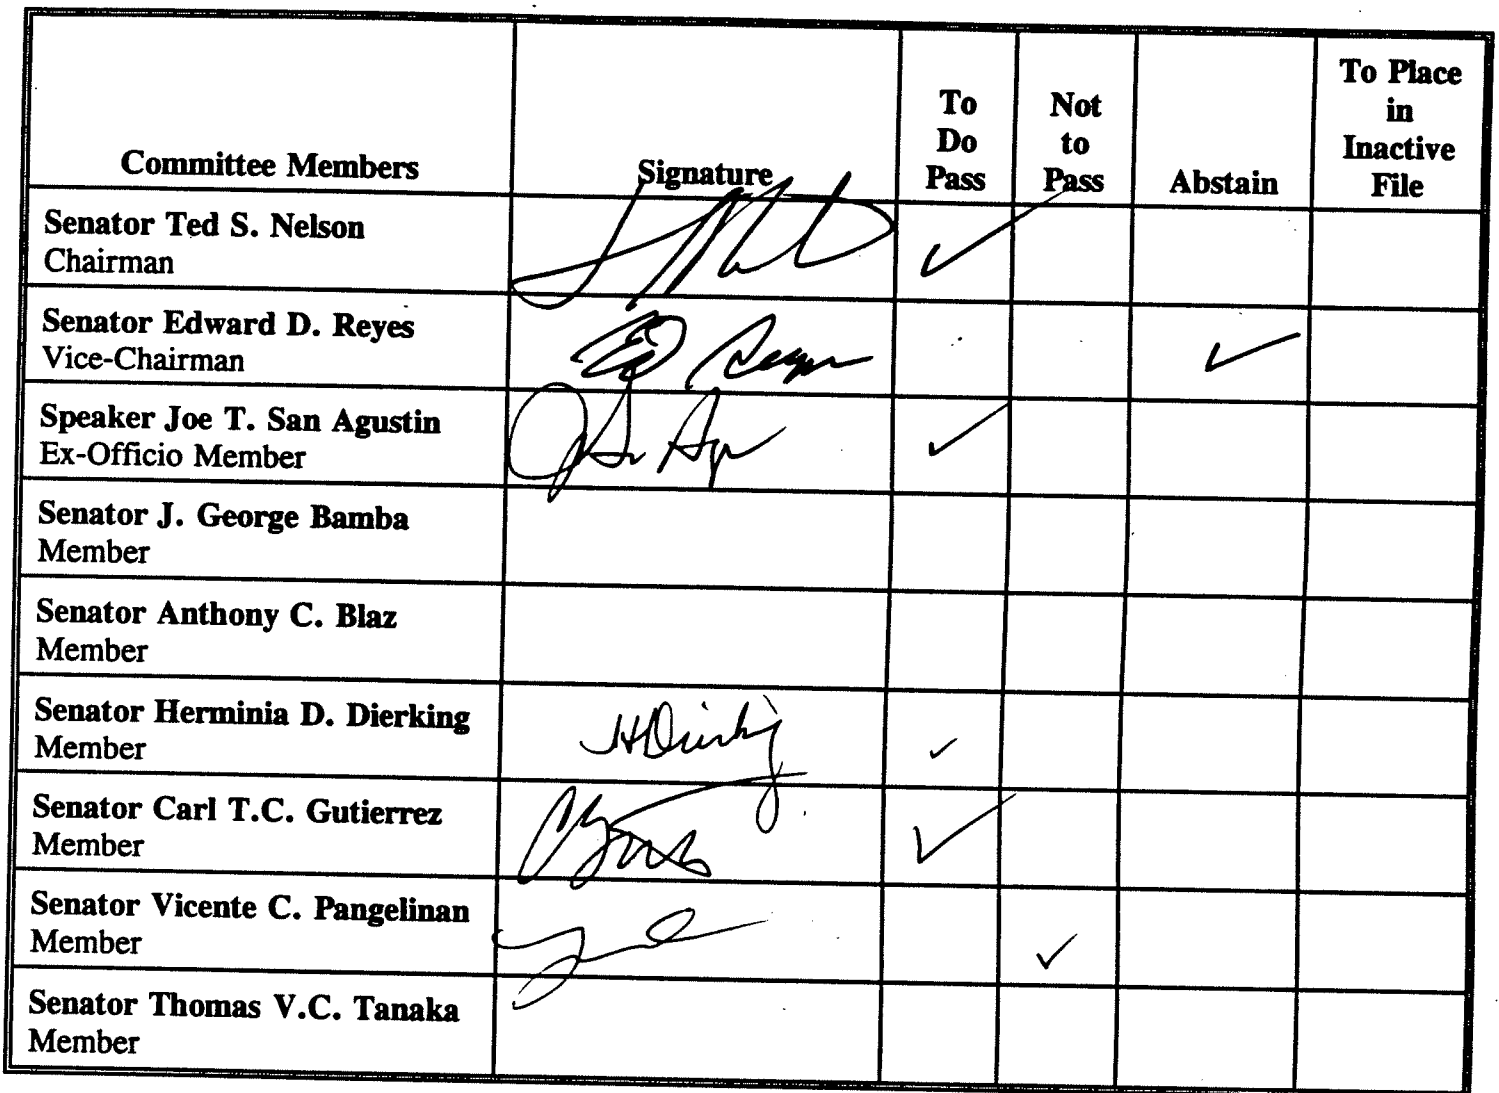 To Place
in
Inactive
File
To
Do
Pass
Not
to
Pass
Committee Members Signature Abstain
Senator Ted S. Nelson
Chairman
Senator Edward D. Reyes
Vice-Chairman
Ed Reyes
Speaker Joe T. San Agustin
Ex-Officio Member
Senator J. George Bamba
Member
Senator Anthony C. Blaz
Member
Senator Herminia D. Dierking
Member
HDierking
Senator Carl T.C. Gutierrez
Member
Senator Vicente C. Pangelinan
Member
Senator Thomas V.C. Tanaka
Member